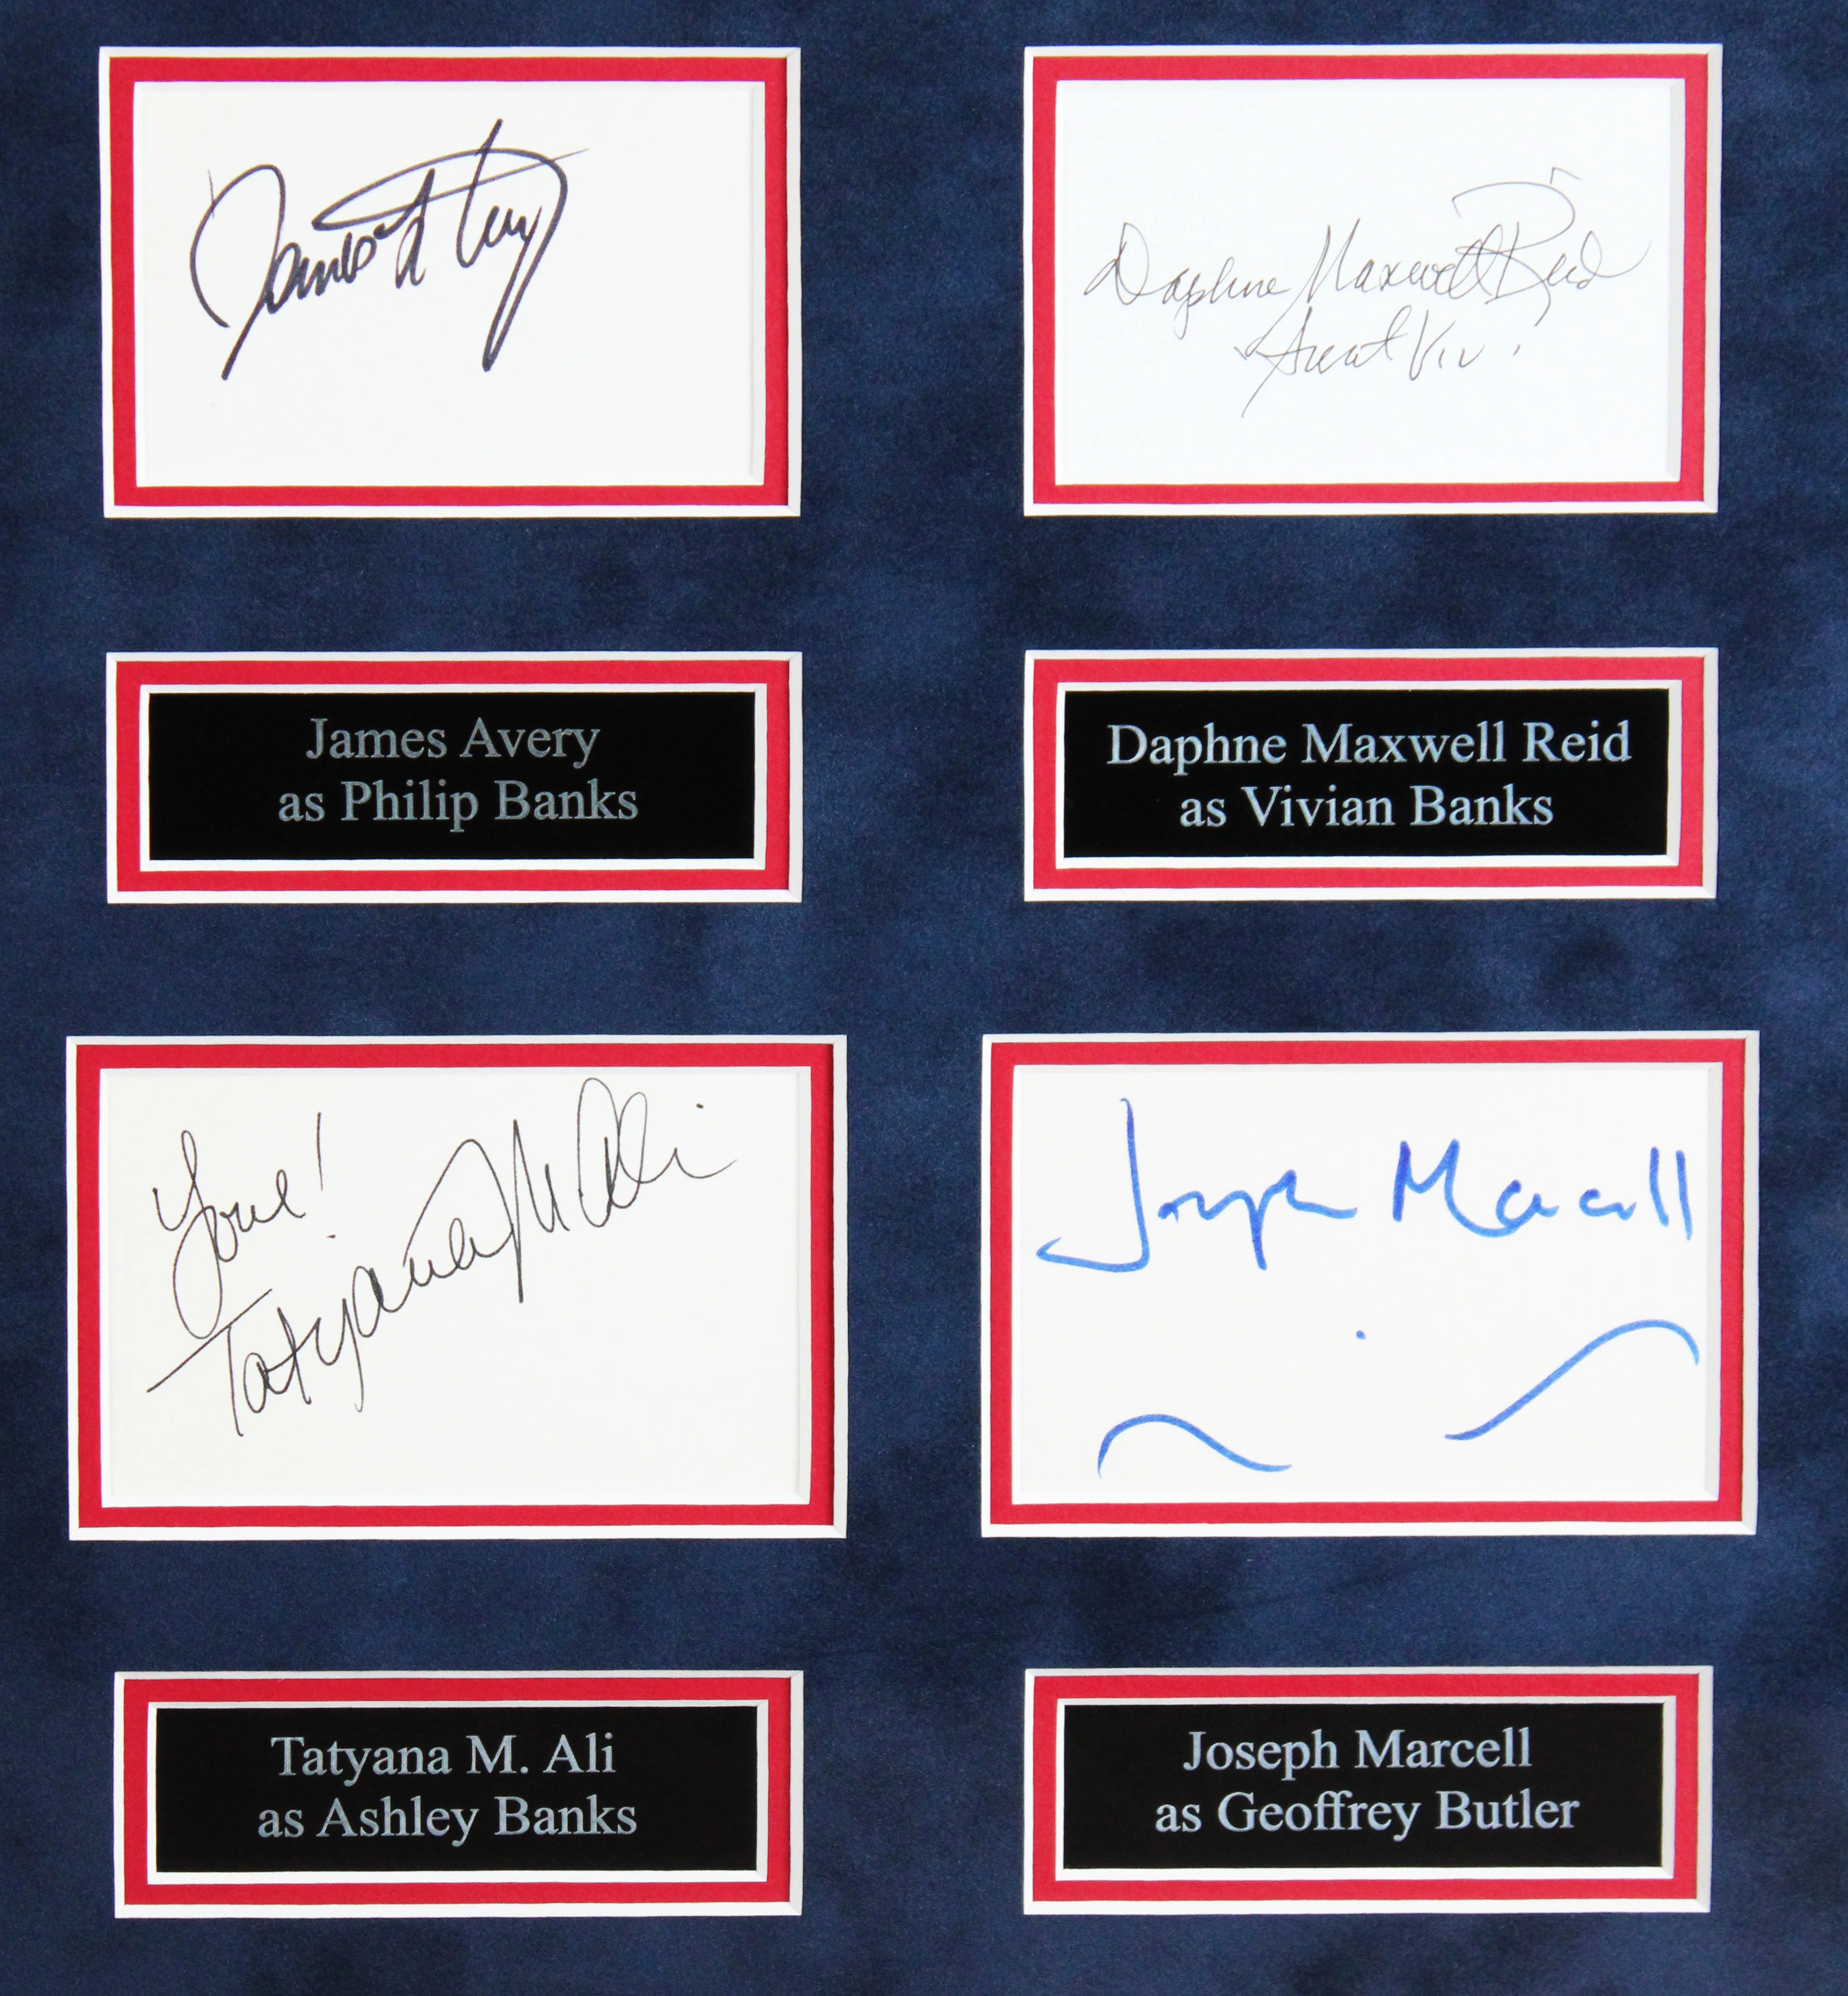 James A Avery
Daphne Maxwell Reid
Aunt Viv!
James Avery
as Philip Banks
Daphne Maxwell Reid
as Vivian Banks
Love!
Tatyana M Ali
Joseph Marcell
Tatyana M. Ali
as Ashley Banks
Joseph Marcell
as Geoffrey Butler